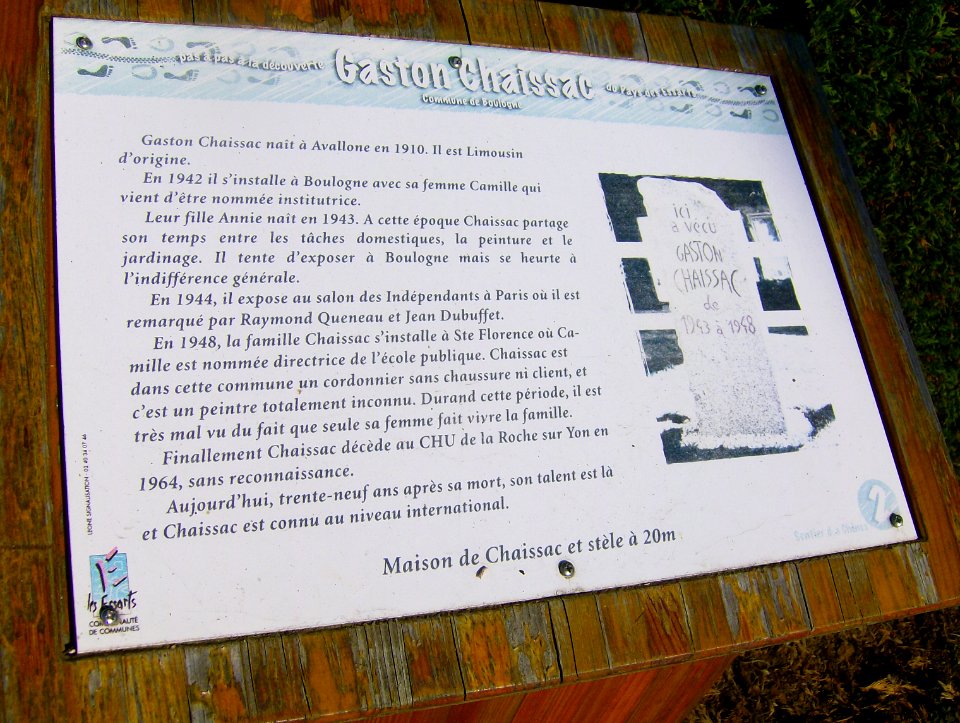 pas à pas à la découverte Gaston Chaissac du Pays des Essarts
Commune de Boulogne
Gaston Chaissac naît à Avallone en 1910. Il est Limousin
d'origine.
En 1942 il s'installe à Boulogne avec sa femme Camille qui
vient d'être nommée institutrice.
Leur fille Annie naît en 1943. A cette époque Chaissac partage
son temps entre les tâches domestiques, la peinture et le
jardinage. Il tente d'exposer à Boulogne mais se heurte à
l'indifférence générale.
En 1944, il expose au salon des Indépendants à Paris où il est
remarqué par Raymond Queneau et Jean Dubuffet.
En 1948, la famille Chaissac s'installe à Ste Florence où Ca-
mille est nommée directrice de l'école publique. Chaissac est
dans cette commune un cordonnier sans chaussure ni client, et
c'est un peintre totalement inconnu. Durand cette période, il est
très mal vu du fait que seule sa femme fait vivre la famille.
Finallement Chaissac décède au CHU de la Roche sur Yon en
1964, sans reconnaissance.
Aujourd'hui, trente-neuf ans après sa mort, son talent est là
et Chaissac est connu au niveau international.
Maison de Chaissac et stèle à 20m
ici
a vécu
GASTON
CHAISSAC
de
1943 à 1948
2
Sentier
LEONE SIGNALISATION - 02 40 34 07 46
les Essarts
COMMUNAUTÉ
DE COMMUNES